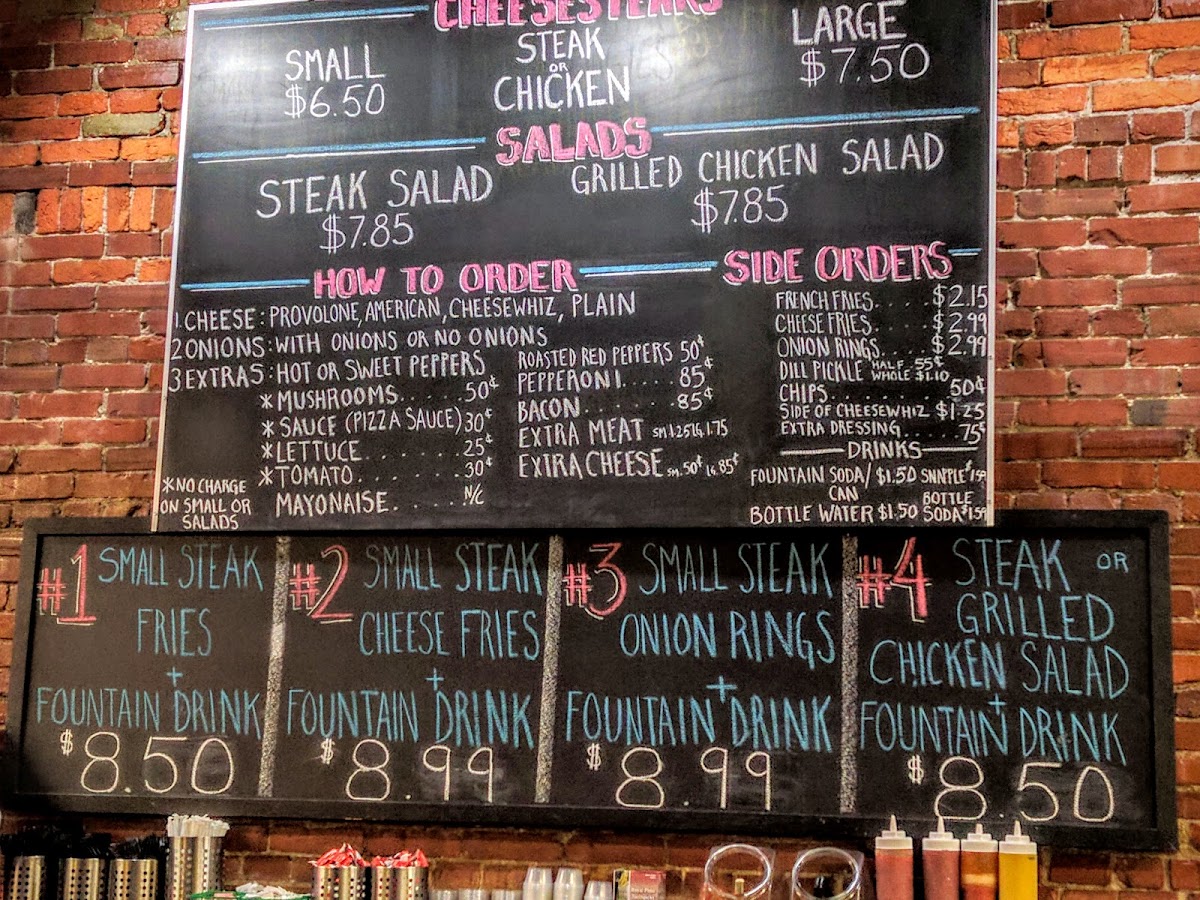 CHEESESTEAKS
SMALL
$6.50
STEAK
OR
CHICKEN
LARGE
$7.50
SALADS
STEAK SALAD
$7.85
GRILLED CHICKEN SALAD
$7.85
HOW TO ORDER
1 CHEESE: PROVOLONE, AMERICAN, CHEESEWHIZ, PLAIN
2 ONIONS: WITH ONIONS OR NO ONIONS
3 EXTRAS: HOT OR SWEET PEPPERS
*MUSHROOMS.....50¢
*SAUCE (PIZZA SAUCE) 30¢
*LETTUCE.........25¢
*TOMATO.........30¢
MAYONAISE.....N/C
*NO CHARGE
ON SMALL OR
SALADS
ROASTED RED PEPPERS 50¢
PEPPERONI......85¢
BACON.........85¢
EXTRA MEAT SM 1.25 LG. 1.75
EXTRA CHEESE SM. 50¢ LG. 85¢
SIDE ORDERS
FRENCH FRIES.....$2.15
CHEESE FRIES.....$2.99
ONION RINGS.....$2.99
DILL PICKLE HALF 55¢
WHOLE $1.10
CHIPS............50¢
SIDE OF CHEESEWHIZ $1.25
EXTRA DRESSING.......75¢
DRINKS
FOUNTAIN SODA/ $1.50 SNNPLE
CAN
BOTTLE
BOTTLE WATER $1.50 SODA
#1 SMALL STEAK
FRIES
+
FOUNTAIN DRINK
$8.50
#2 SMALL STEAK
CHEESE FRIES
+
FOUNTAIN DRINK
$8.99
#3 SMALL STEAK
ONION RINGS
+
FOUNTAIN DRINK
$8.99
#4 STEAK OR
GRILLED
CHICKEN SALAD
+
FOUNTAIN DRINK
$8.50